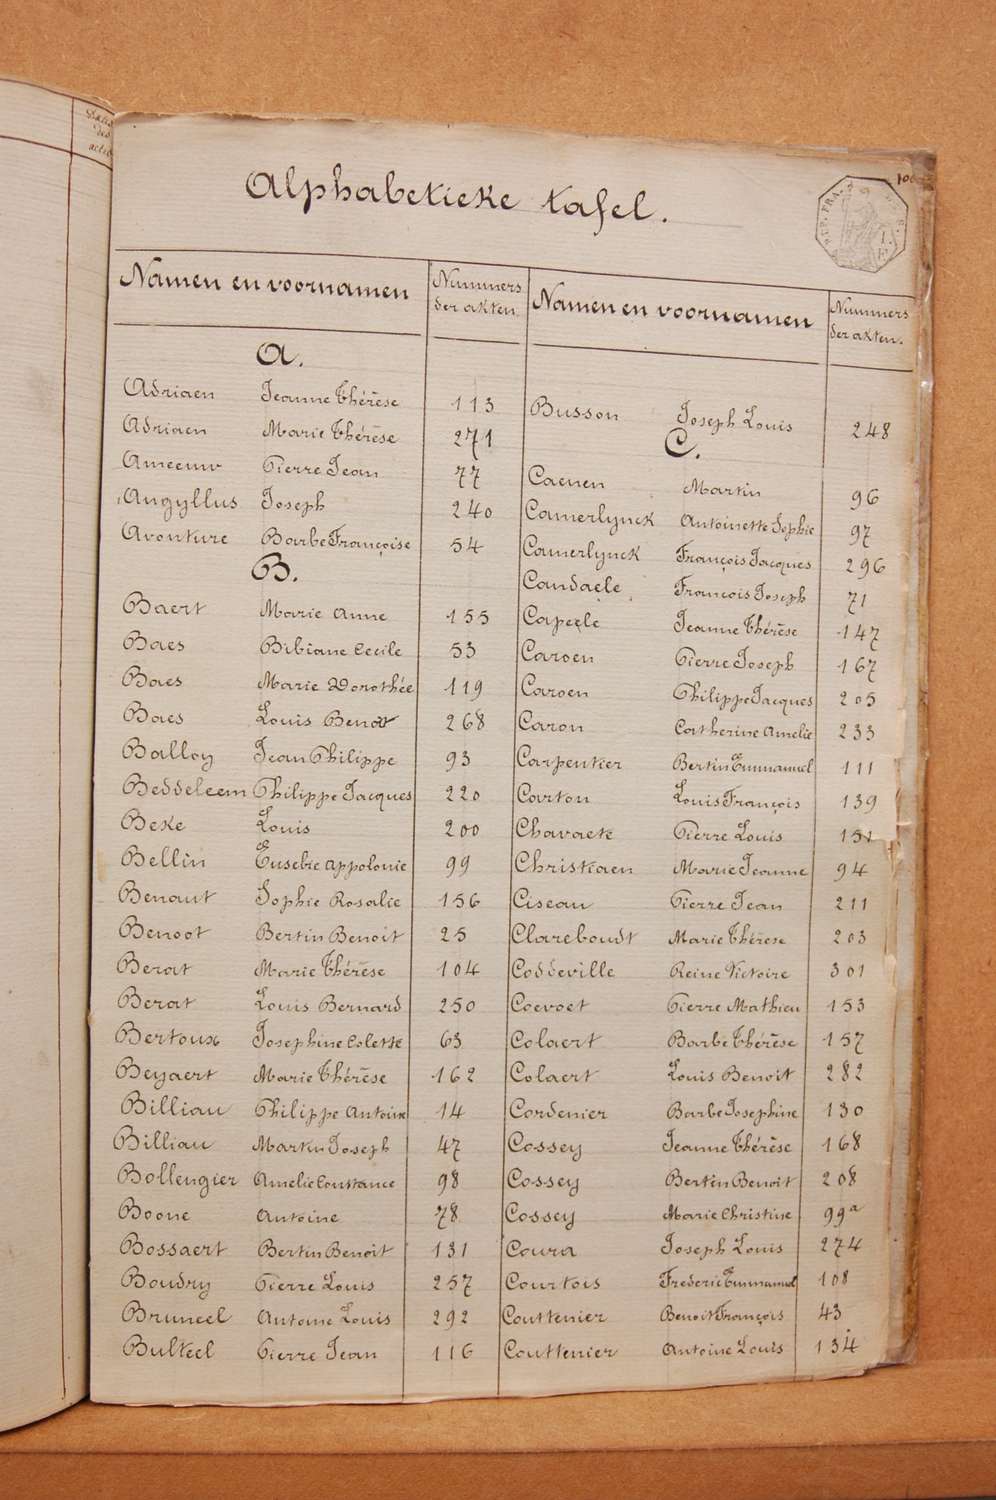 Alphabetieke tafel.
Namen en voornamen
Nummers
der akten.
A.
Adriaen Jeanne Thérèse 113
Adriaen Marie Thérèse 271
Ameeuw Pierre Jean 77
Angyllus Joseph 240
Avonture Barbe Françoise 54
B.
Baert Marie Anne 155
Baes Bibiane Cecile 53
Baes Marie Dorothée 119
Baes Louis Benoit 268
Balloy Jean Philippe 93
Beddeleem Philippe Jacques 220
Beke Louis 200
Bellin Eusebie Appolonie 99
Benaut Sophie Rosalie 156
Benoot Bertin Benoit 25
Berat Marie Thérèse 104
Berat Louis Bernard 250
Bertoux Josephine Colette 63
Beyaert Marie Thérèse 162
Billiau Philippe Antoine 14
Billiau Martin Joseph 47
Bollengier Amelie Constance 98
Boone Antoine 78
Bossaert Bertin Benoit 131
Boudry Pierre Louis 257
Bruneel Antoine Louis 292
Bulteel Pierre Jean 116
Namen en voornamen
Nummers
der akten.
Busson Joseph Louis 248
C.
Caenen Martin 96
Camerlynck Antoinette Sophie 97
Camerlynck François Jacques 296
Candaele François Joseph 71
Capeele Jeanne Thérèse 147
Caroen Pierre Joseph 167
Caroen Philippe Jacques 205
Caron Catherine Amelie 233
Carpentier Bertin Emmanuel 111
Carton Louis François 139
Chavaete Pierre Louis 151
Christiaen Marie Jeanne 94
Ciseau Pierre Jean 211
Clareboudt Marie Thérèse 203
Coddeville Reine Victoire 301
Coevoet Pierre Mathieu 153
Colaert Barbe Thérèse 157
Colaert Louis Benoit 282
Cordenier Barbe Josephine 130
Cossey Jeanne Thérèse 168
Cossey Bertin Benoit 208
Cossey Marie Christine 99a
Coura Joseph Louis 274
Courtois Frederic Emmanuel 108
Couttenier Benoit François 43
Couttenier Antoine Louis 134